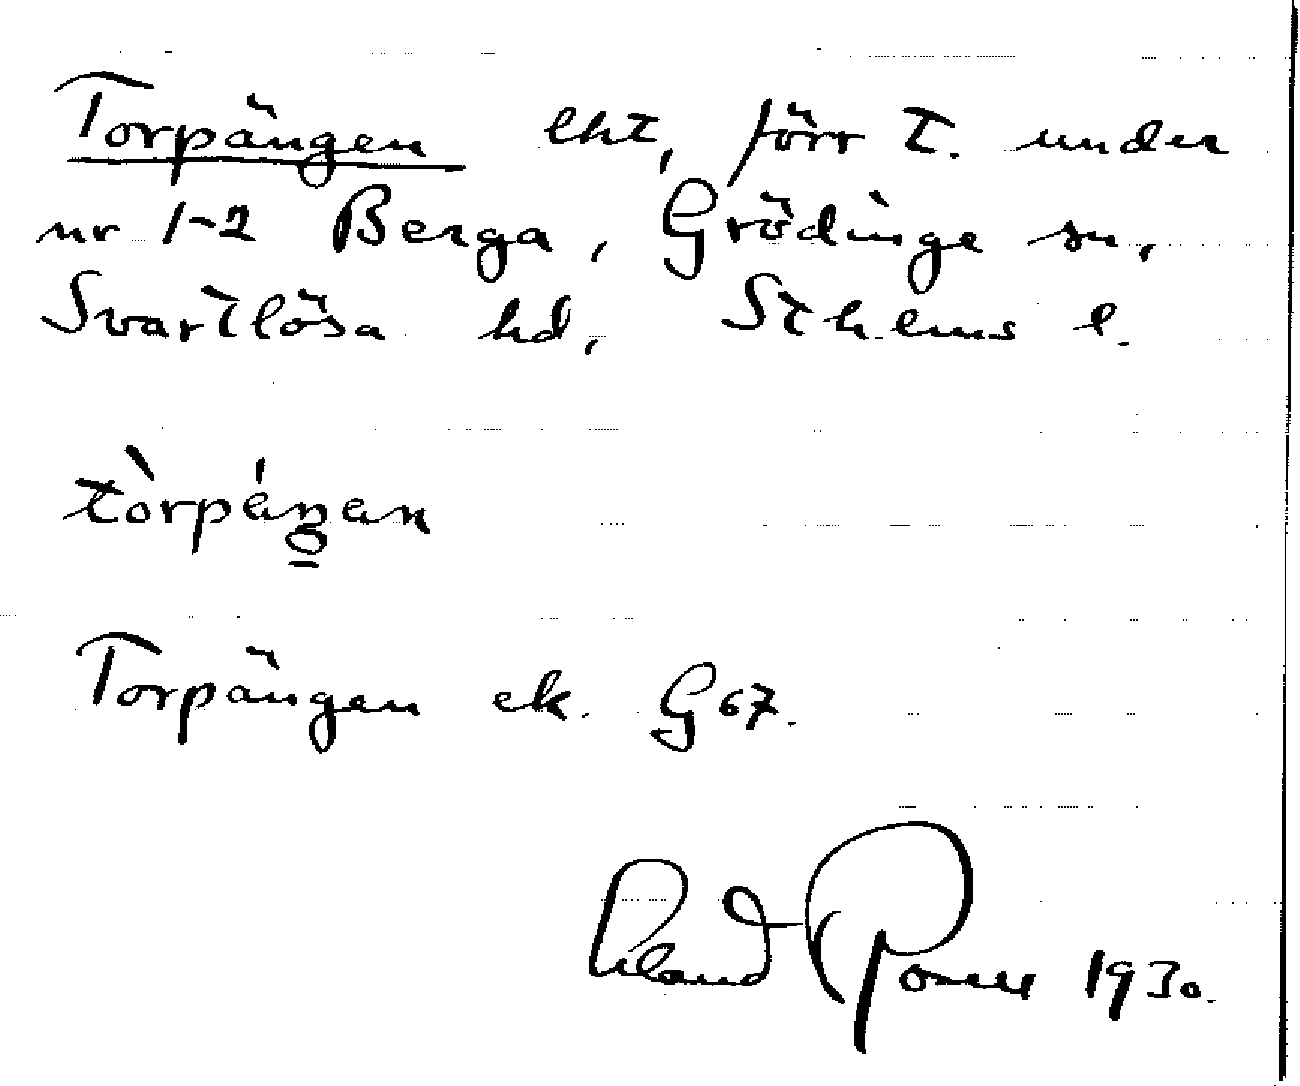 Torpängen lht, förr t. under
nr 1-2 Berga, Grödinge sn,
Svartlösa hd, Sthlms l.
tòrpáŋan
Torpängen ek. G 67.
1930.